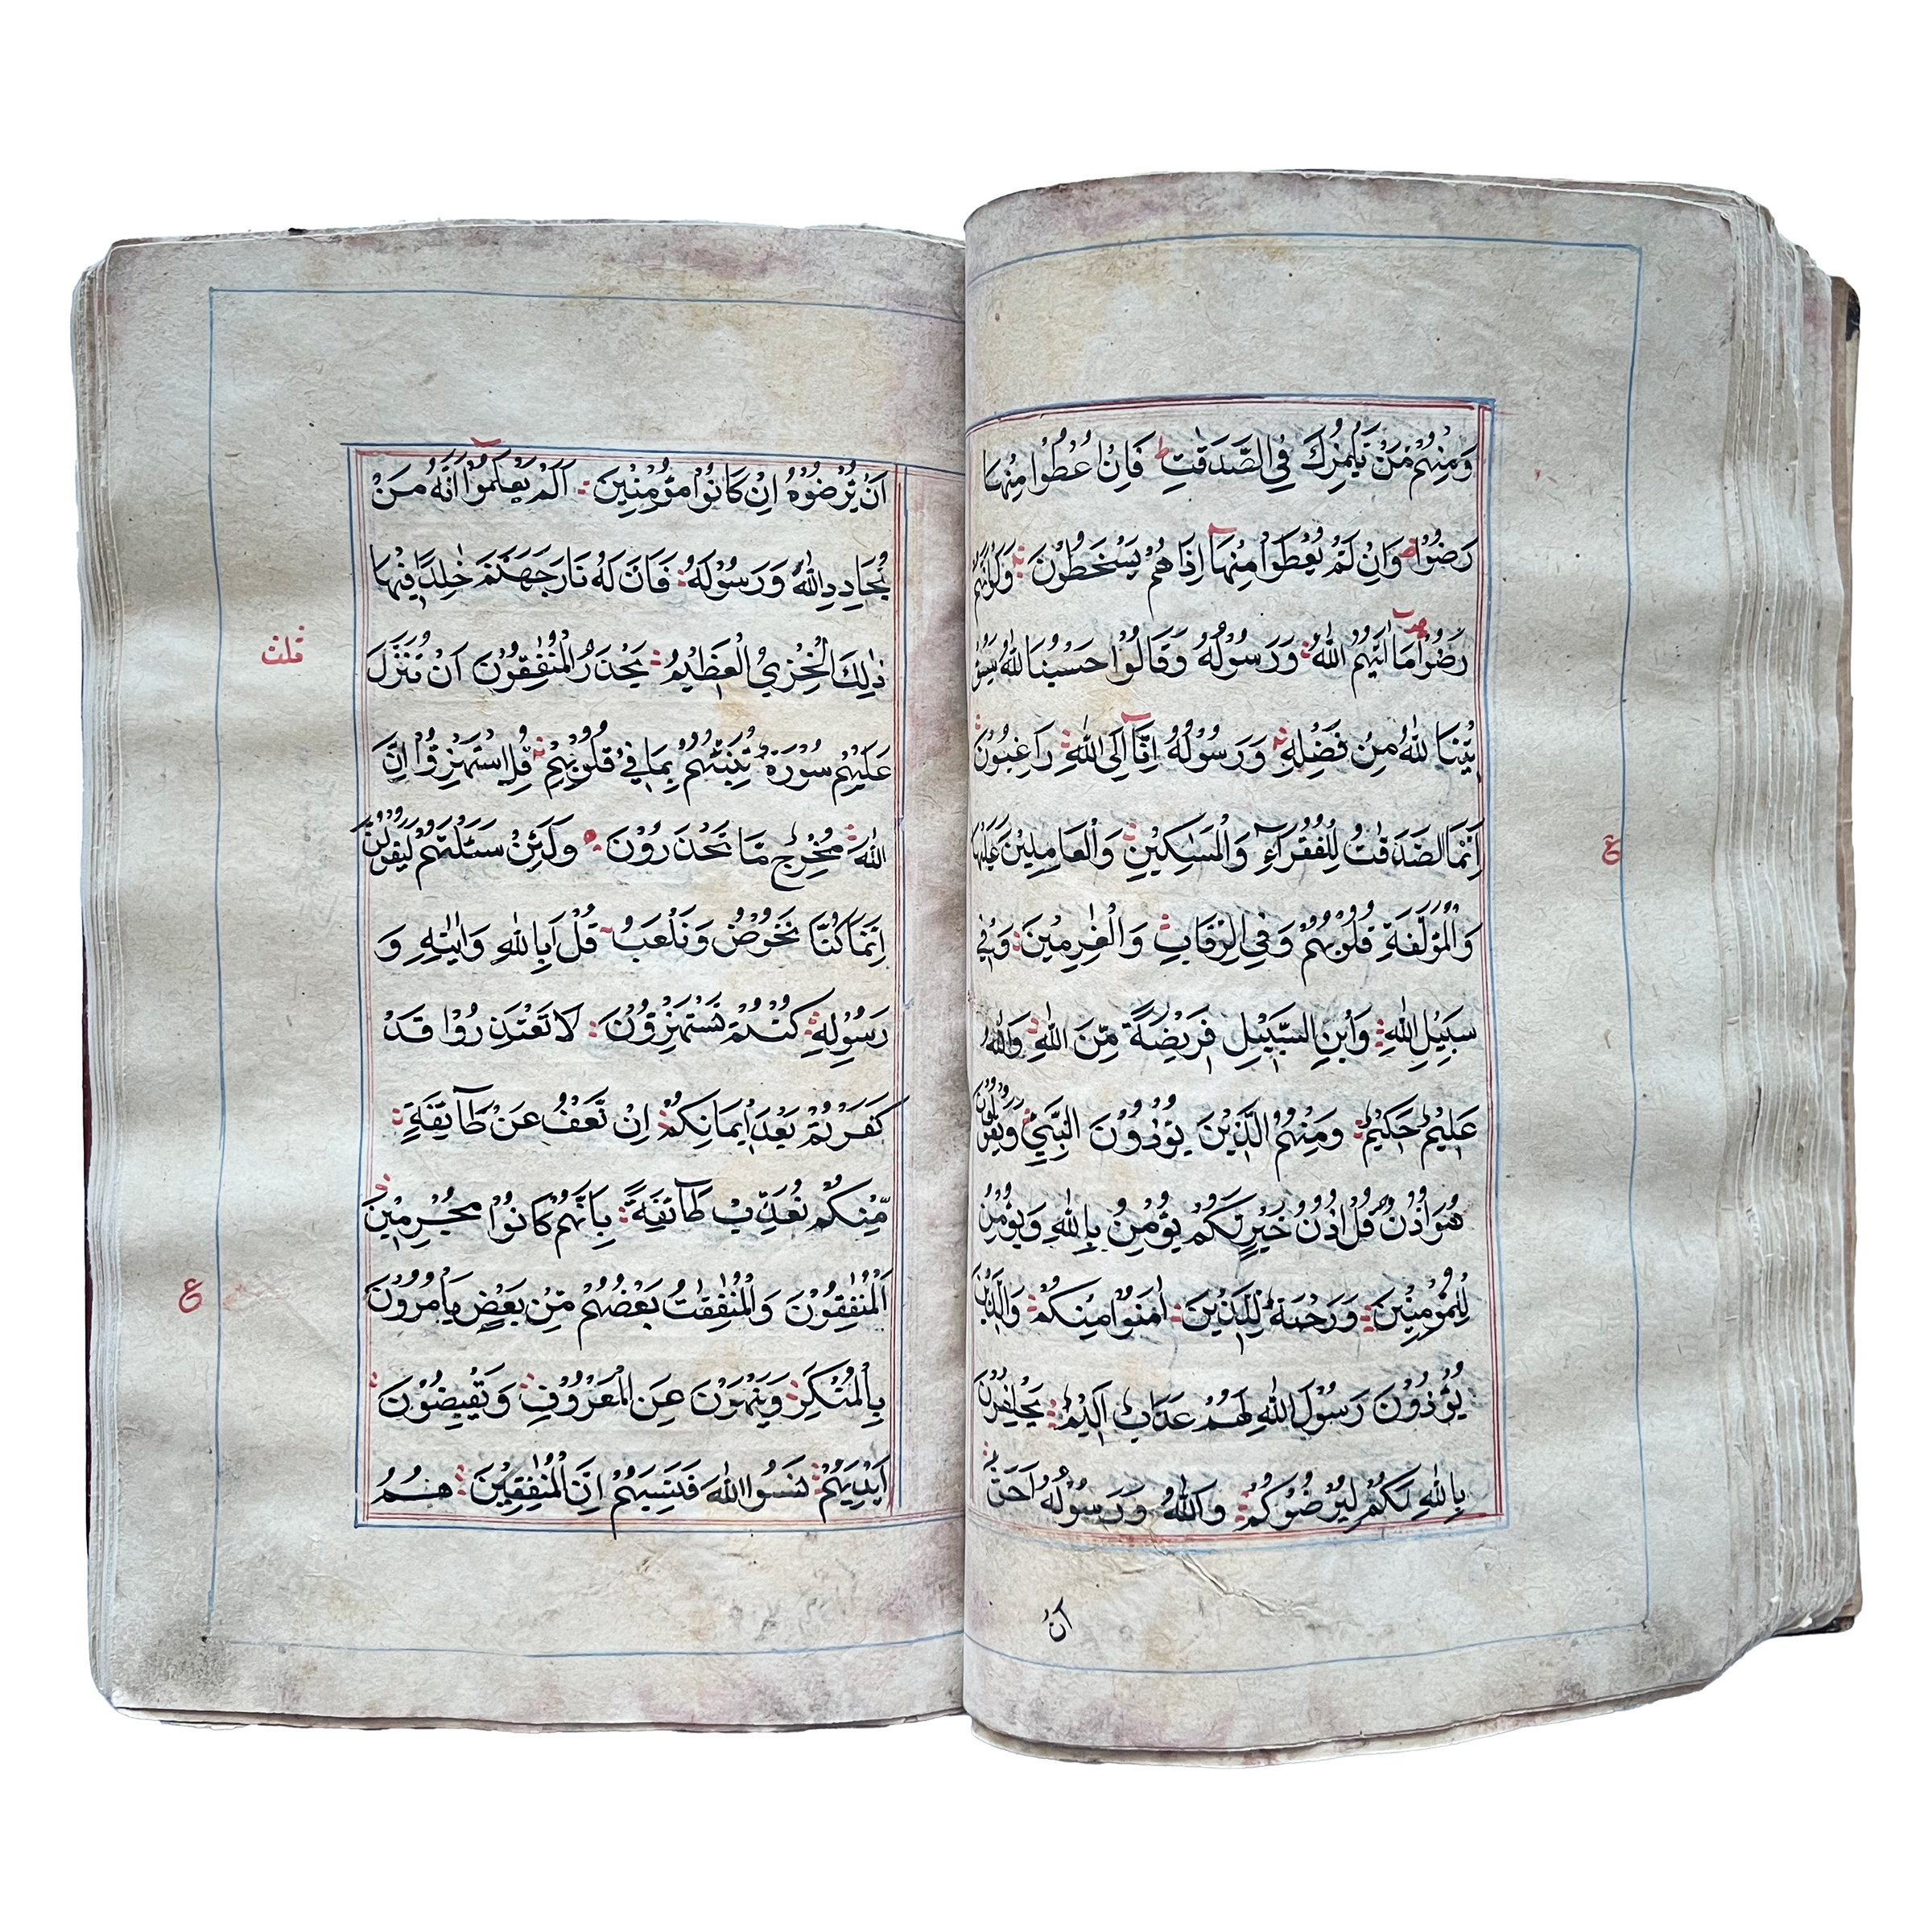 وَمِنْهُمْ مَنْ يَلْمِزُكَ فِي الصَّدَقٰتِ ط فَاِنْ اُعْطُوْا مِنْهَا
رَضُوْا وَاِنْ لَمْ يُعْطَوْا مِنْهَآ اِذَا هُمْ يَسْخَطُوْنَ وَلَوْ اَنَّهُمْ
رَضُوْا مَا اٰتٰىهُمُ اللّٰهُ وَرَسُوْلُهٗ وَقَالُوْا حَسْبُنَا اللّٰهُ سَيُؤْ
تِيْنَا اللّٰهُ مِنْ فَضْلِهٖ وَرَسُوْلُهٗ اِنَّآ اِلَى اللّٰهِ رَاغِبُوْنَ
ع
اِنَّمَا الصَّدَقٰتُ لِلْفُقَرَآءِ وَالْمَسٰكِيْنِ وَالْعَامِلِيْنَ عَلَيْهَا
وَالْمُؤَلَّفَةِ قُلُوْبُهُمْ وَفِي الرِّقَابِ وَالْغٰرِمِيْنَ وَفِيْ
سَبِيْلِ اللّٰهِ وَابْنِ السَّبِيْلِ فَرِيْضَةً مِّنَ اللّٰهِ وَاللّٰهُ
عَلِيْمٌ حَكِيْمٌ وَمِنْهُمُ الَّذِيْنَ يُؤْذُوْنَ النَّبِيَّ وَيَقُوْلُوْنَ
هُوَ اُذُنٌ قُلْ اُذُنُ خَيْرٍ لَّكُمْ يُؤْمِنُ بِاللّٰهِ وَيُؤْمِنُ
لِلْمُؤْمِنِيْنَ وَرَحْمَةٌ لِلَّذِيْنَ اٰمَنُوْا مِنْكُمْ وَالَّذِيْنَ
يُؤْذُوْنَ رَسُوْلَ اللّٰهِ لَهُمْ عَذَابٌ اَلِيْمٌ يَحْلِفُوْنَ
بِاللّٰهِ لَكُمْ لِيُرْضُوْكُمْ وَاللّٰهُ وَرَسُوْلُهٗ اَحَقُّ
اَنْ
اَنْ يُّرْضُوْهُ اِنْ كَانُوْا مُؤْمِنِيْنَ اَلَمْ يَعْلَمُوْٓا اَنَّهٗ مَنْ
يُحَادِدِ اللّٰهَ وَرَسُوْلَهٗ فَاَنَّ لَهٗ نَارَ جَهَنَّمَ خٰلِدًا فِيْهَا
ثلث
ذٰلِكَ الْخِزْيُ الْعَظِيْمُ يَحْذَرُ الْمُنٰفِقُوْنَ اَنْ تُنَزَّلَ
عَلَيْهِمْ سُوْرَةٌ تُنَبِّئُهُمْ بِمَا فِيْ قُلُوْبِهِمْ قُلِ اسْتَهْزِءُوْا اِنَّ
اللّٰهَ مُخْرِجٌ مَّا تَحْذَرُوْنَ وَلَئِنْ سَئَلْتَهُمْ لَيَقُوْلُنَّ
اِنَّمَا كُنَّا نَخُوْضُ وَنَلْعَبُ قُلْ اَبِاللّٰهِ وَاٰيٰتِهٖ وَ
رَسُوْلِهٖ كُنْتُمْ تَسْتَهْزِءُوْنَ لَا تَعْتَذِرُوْا قَدْ
كَفَرْتُمْ بَعْدَ اِيْمَانِكُمْ اِنْ نَّعْفُ عَنْ طَآئِفَةٍ
مِّنْكُمْ نُعَذِّبْ طَآئِفَةً بِاَنَّهُمْ كَانُوْا مُجْرِمِيْنَ
ع
اَلْمُنٰفِقُوْنَ وَالْمُنٰفِقٰتُ بَعْضُهُمْ مِّنْ بَعْضٍ يَاْمُرُوْنَ
بِالْمُنْكَرِ وَيَنْهَوْنَ عَنِ الْمَعْرُوْفِ وَيَقْبِضُوْنَ
اَيْدِيَهُمْ نَسُوا اللّٰهَ فَنَسِيَهُمْ اِنَّ الْمُنٰفِقِيْنَ هُمُ